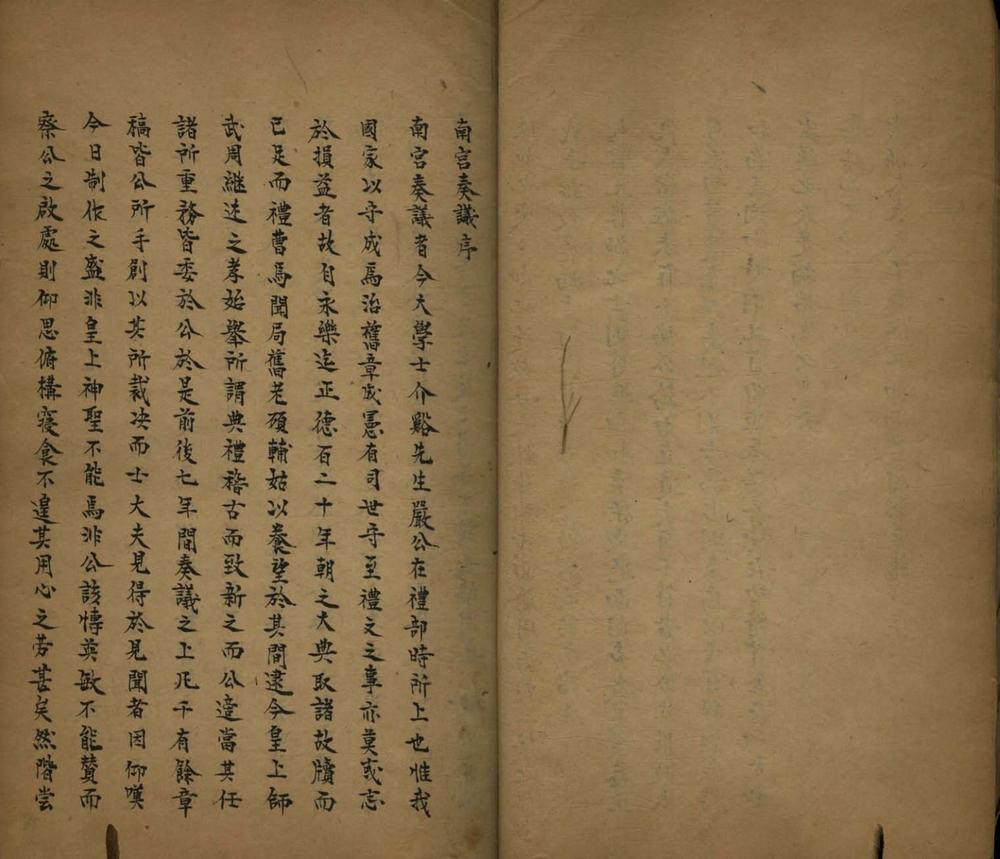 南宮奏議序
南宮奏議者今大學士介谿先生嚴公在禮部時所上也惟我
國家以守成爲治舊章成憲有司世守至禮文之事亦莫或忘
於損益者故自永樂迄正德百二十年朝之大典取諸故牘而
已足而禮曹爲閒局舊老碩輔姑以養望於其間逮今皇上師
武周繼述之孝始舉所謂典禮稽古而致新之而公遭當其任
諸所重務皆委於公於是前後七年間奏議之上凡千有餘章
稿皆公所手創以其所裁决而士大夫見得於見聞者因仰嘆
今日制作之盛非皇上神聖不能爲非公該愽英敏不能贊而
察公之啟處則仰思俯構寝食不遑其用心之苦甚矣然階尝